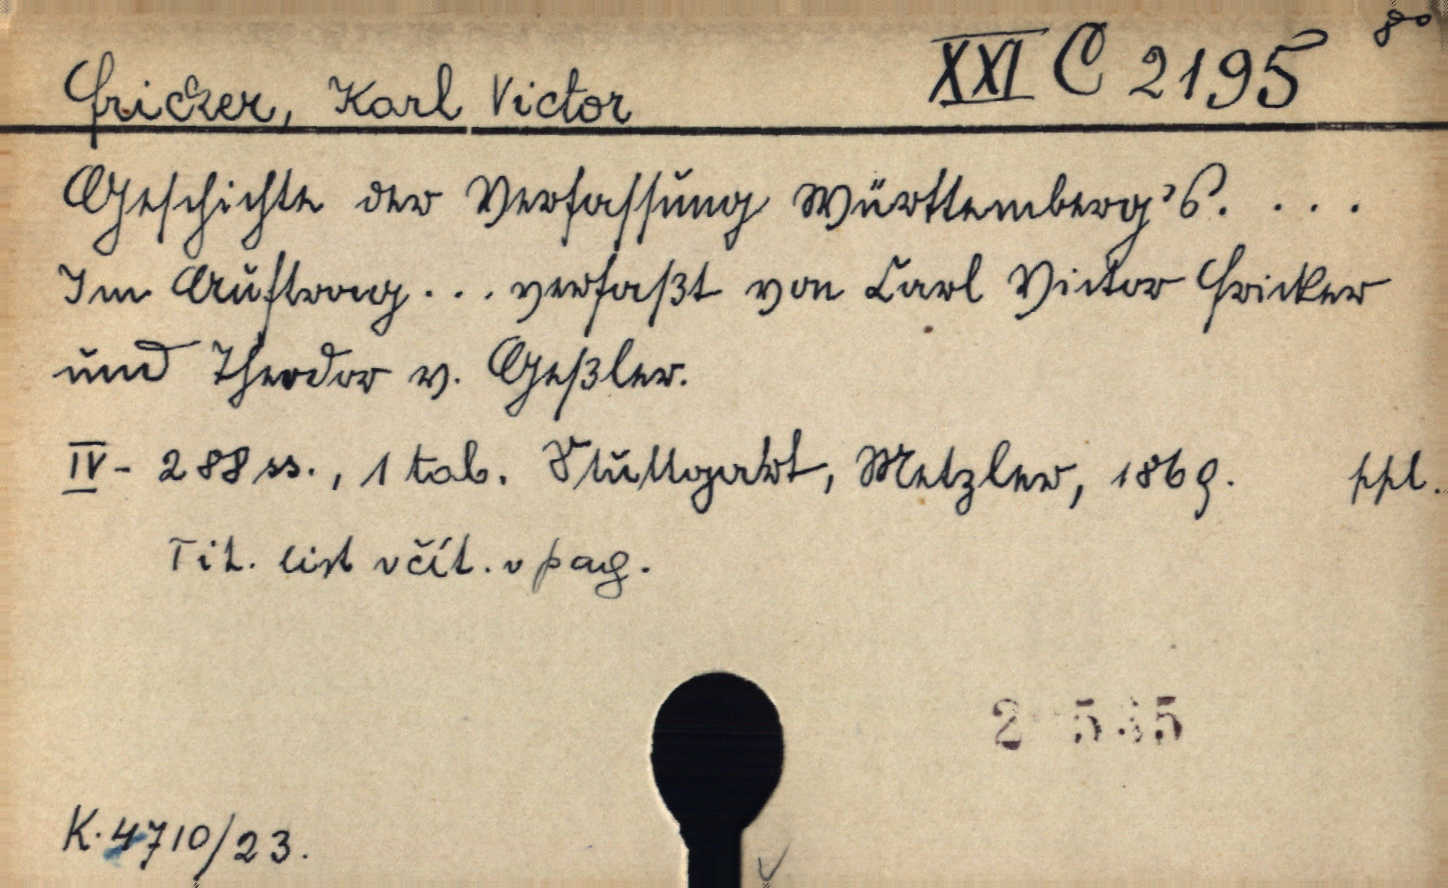 Fricker, Karl Victor XXI C 2195 8o
Geschichte der Verfassung Württemberg's. . . .
Im Auftrag . . . verfaßt von Carl Victor Fricker
und Theodor v. Geßler.
IV - 288 ss., 1 tab. Stuttgart, Metzler, 1869. ppl.
Tit. list včít. v pag.
K. 4710/23.